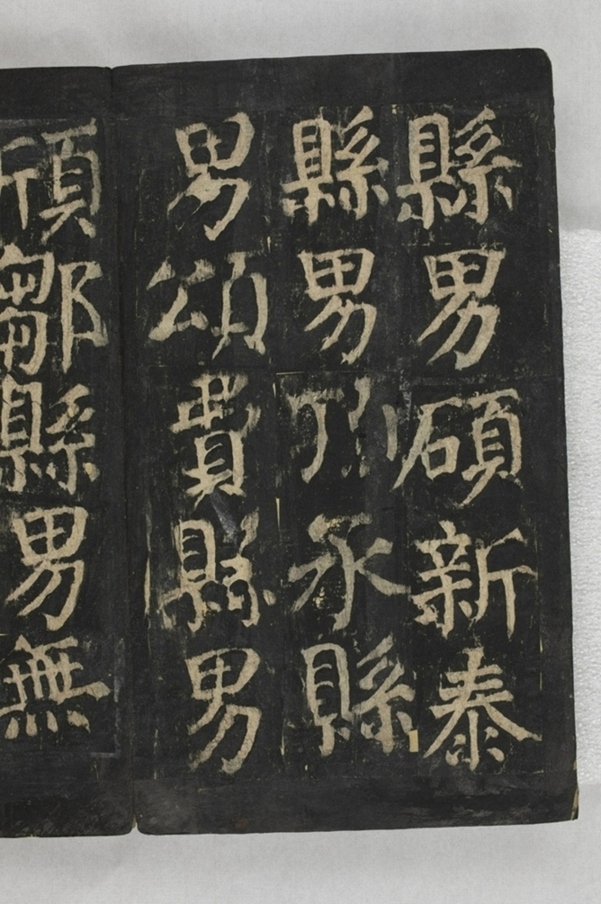 縣男碩新泰
縣男承縣
男頌費縣男
頎鄒縣男無